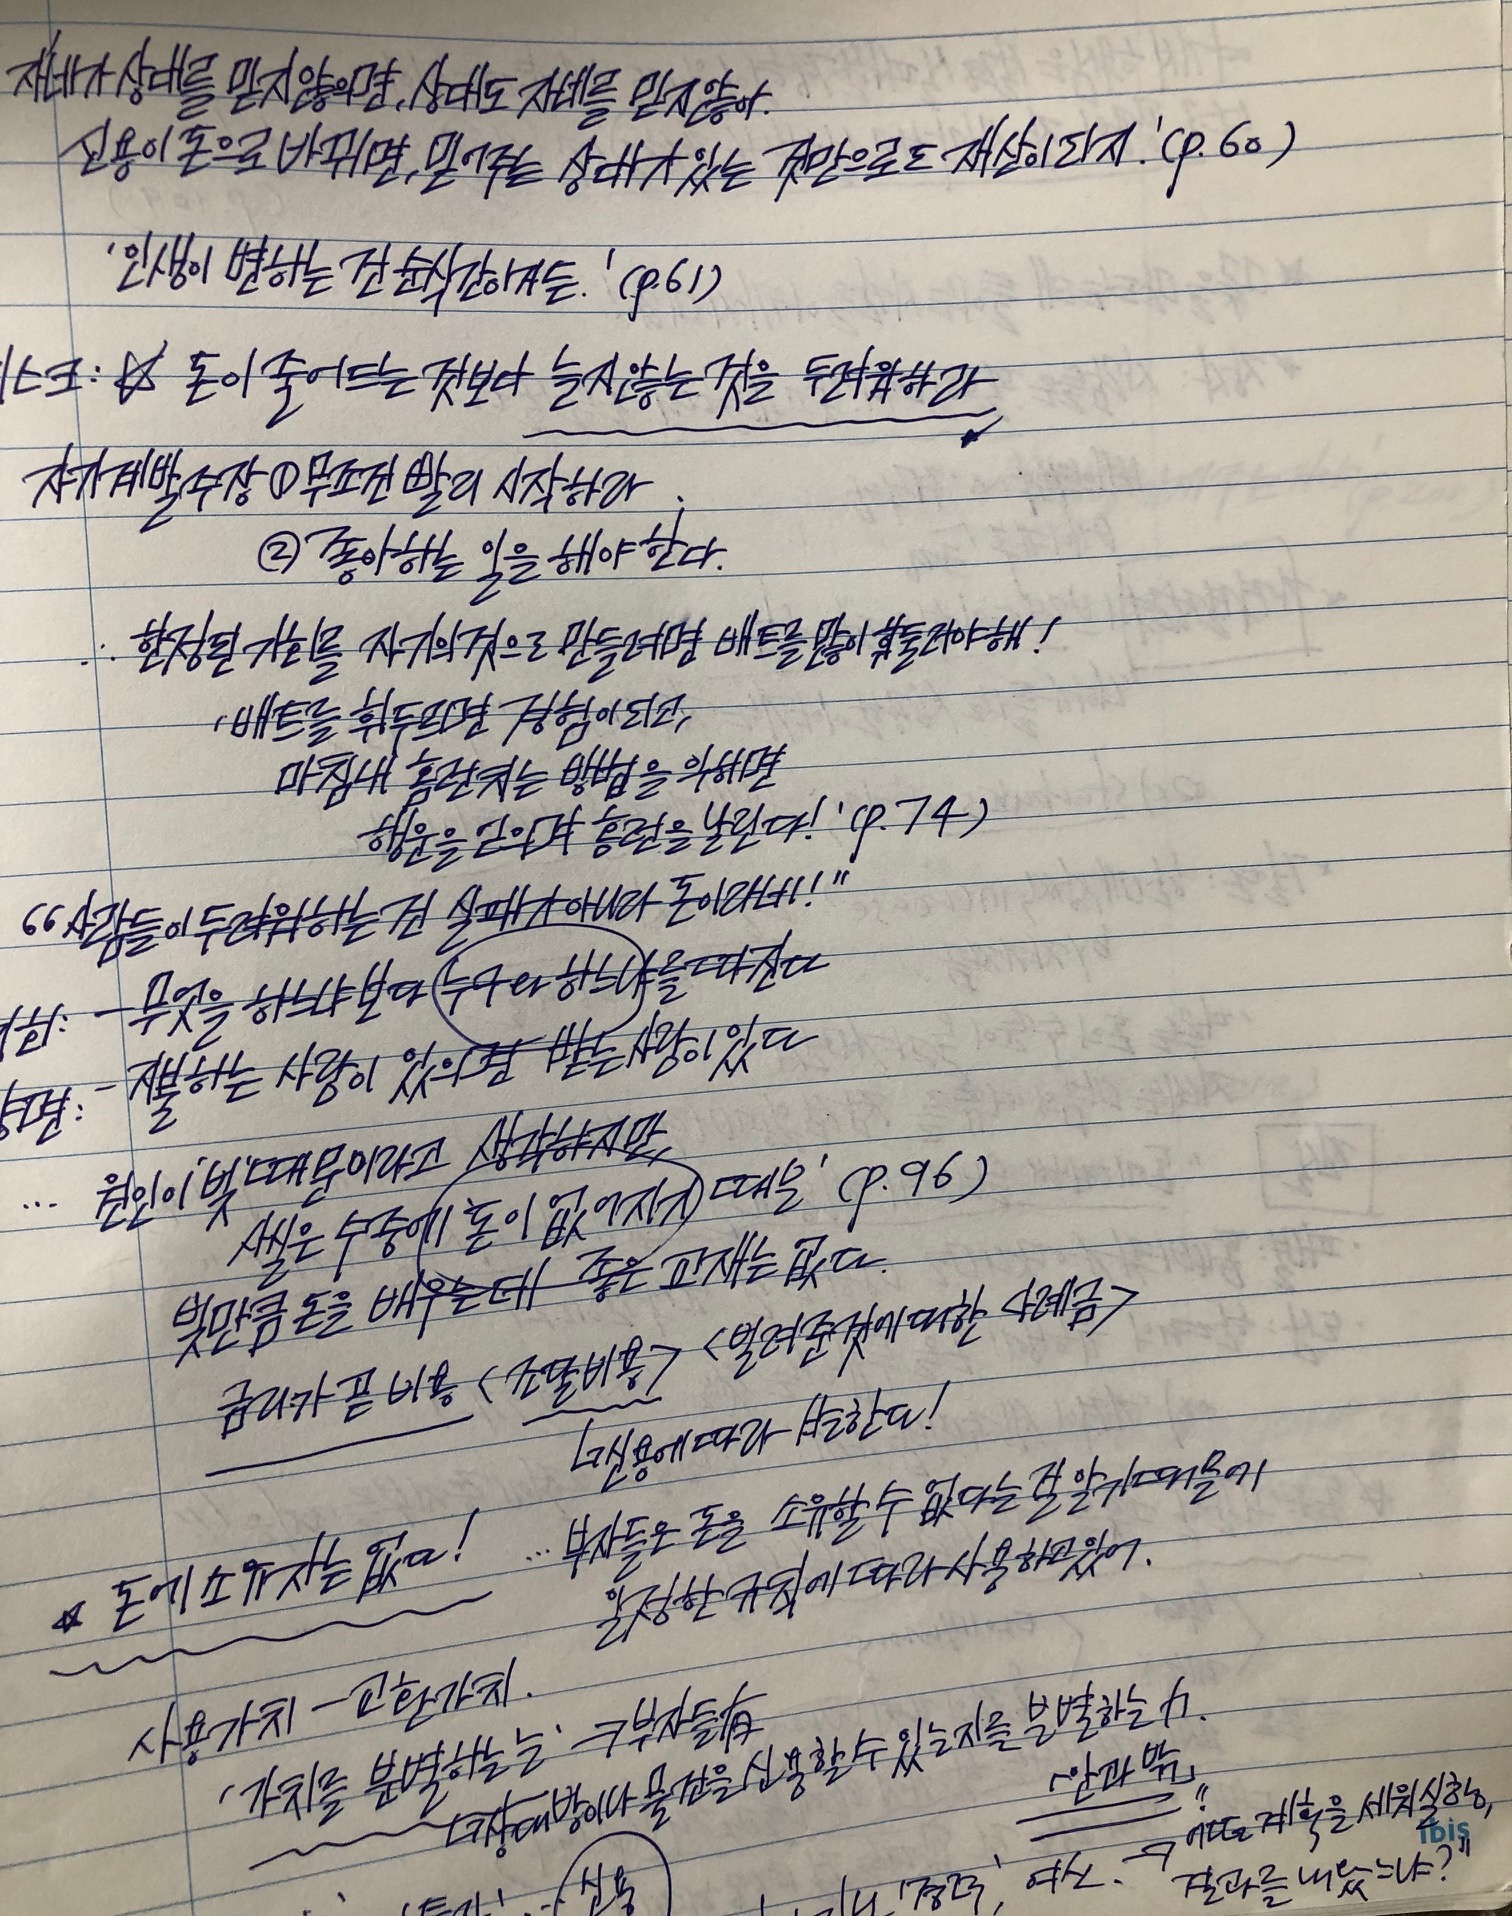 자네가 상대를 믿지않으면, 상대도 자네를 믿지않아.
신용이 돈으로 바뀌면, 믿어주는 상대가 있는 것만으로도 재산이 되지.' (p.60)
'인생이 변하는 건 순식간이거든.' (p.61)
스크: ☆ 돈이 줄어드는 것보다 늘지않는 것을 두려워하라
자기계발수장 ① 무조건 빨리 시작하라.
② 좋아하는 일을 해야 한다.
∴ 한정된 기회를 자기의것으로 만들려면 배트를 많이 휘둘러야해!
'배트를 휘두르면 경험이 되고,
마침내 홈런치는 방법을 익히면
행운을 얻으며 홈런을 날린다!' (p.74)
"사람들이 두려워하는 건 실패가 아니라 돈이라네!"
- 무엇을 하느냐보다 누구와 하느냐를 따진다
면: - 지불하는 사람이 있으면 받는사람이 있다
... 원인이 '빚' 때문이라고 생각하지만,
사실은 수중에 돈이 없어지기 때문' (p.96)
빚만큼 돈을 배우는데 좋은 교재는 없다.
금리가 곧 비용 <조달비용> <빌려준것에 대한 사례금>
↳신용에 따라 변한다!
☆ 돈에 소유자는 없다! ... 부자들은 돈을 소유할 수 없다는 걸 알기 때문에
일정한 규칙에 따라 사용하고있어.
사용가치 - 교환가치.
'가치를 분별하는 눈' → 부자들有
↳상대방이나 물건을 신용할 수 있는지를 분별하는 力.
「안과 밖」
"어떤 계획을 세워 실행,
신용 '경력', 여신. → 결과를 내왔느냐?"
ibis